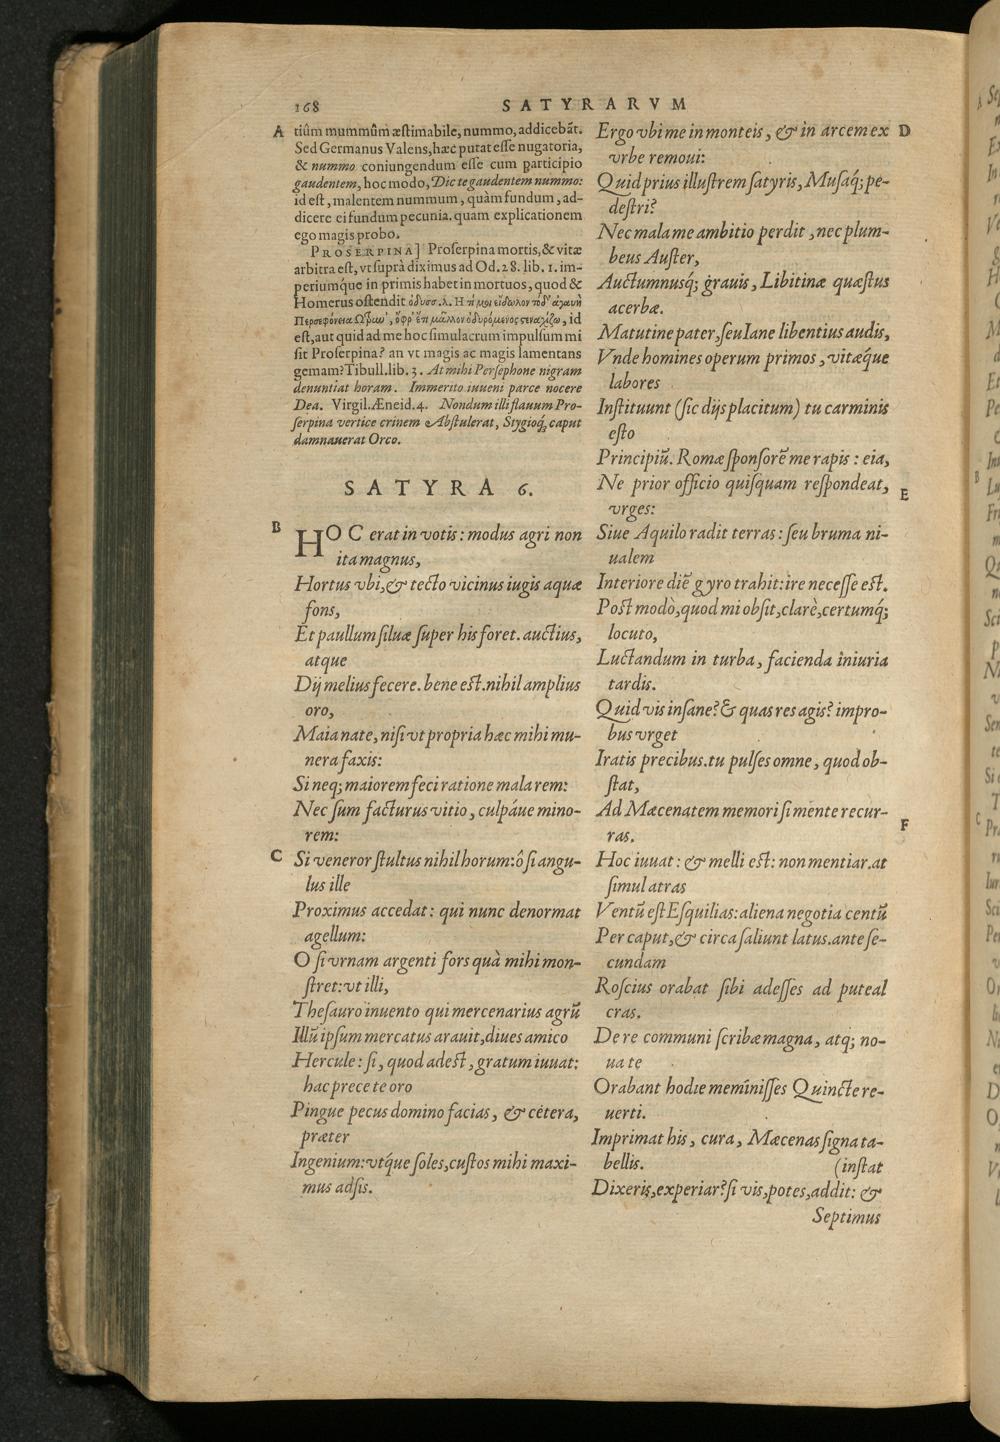 168
SATYRARVM
A tiûm mummûm æstimabile, nummo, addicebāt.
Sed Germanus Valens, hæc putat esse nugatoria,
& nummo coniungendum esse cum participio
gaudentem, hoc modo, Dic te gaudentem nummo:
id est, malentem nummum, quàm fundum, ad-
dicere ei fundum pecunia. quam explicationem
ego magis probo.
PROSERPINA] Proserpina mortis, & vitæ
arbitra est, vt suprà diximus ad Od. 28. lib. 1. im-
periumque in primis habet in mortuos, quod &
Homerus ostendit ὀδυσσ. λ. Η τί μοι εἴδωλον τόδ' ἀγαυὴ
Περσεφόνεια Ωτρυν', ὄφρ' ἔτι μᾶλλον ὀδυρόμενος στεναχίζω, id
est, aut quid ad me hoc simulacrum impulsum mi
sit Proserpina? an vt magis ac magis lamentans
gemam? Tibull. lib. 3. At mihi Persephone nigram
denuntiat horam. Immerito iuueni parce nocere
Dea. Virgil. Æneid. 4. Nondum illi flauum Pro-
serpina vertice crinem Abstulerat, Stygioq́; caput
damnauerat Orco.
SATYRA 6.
B HOC erat in votis: modus agri non
ita magnus,
Hortus vbi, & tecto vicinus iugis aquæ
fons,
Et paullum siluæ super his foret. auctius,
atque
Dij melius fecere. bene est. nihil amplius
oro,
Maia nate, nisi vt propria hæc mihi mu-
nera faxis:
Si neq; maiorem feci ratione mala rem:
Nec sum facturus vitio, culpáue mino-
rem:
C Si veneror stultus nihil horum: ô si angu-
lus ille
Proximus accedat: qui nunc denormat
agellum:
O si vrnam argenti fors quà mihi mon-
stret: vt illi,
Thesauro inuento qui mercenarius agrū
Illū ipsum mercatus arauit, diues amico
Hercule: si, quod adest, gratum iuuat:
hac prece te oro
Pingue pecus domino facias, & cetera,
præter
Ingenium: vtq́ue soles, custos mihi maxi-
mus adsis.
Ergo vbi me in monteis, & in arcem ex D
vrbe remoui:
Quid prius illustrem satyris, Musaq́; pe-
destri?
Nec mala me ambitio perdit, nec plum-
beus Auster,
Auctumnusq́; grauis, Libitinæ quæstus
acerbæ.
Matutine pater, seu Iane libentius audis,
Vnde homines operum primos, vitæque
labores
Instituunt (sic dijs placitum) tu carminis
esto
Principiū. Romæ sponsorē me rapis: eia,
Ne prior officio quisquam respondeat, E
vrges:
Siue Aquilo radit terras: seu bruma ni-
ualem
Interiore diē gyro trahit: ire necesse est.
Post modò, quod mi obsit, clarè, certumq́;
locuto,
Luctandum in turba, facienda iniuria
tardis.
Quid vis insane? & quas res agis? impro-
bus vrget
Iratis precibus. tu pulses omne, quod ob-
stat,
Ad Mæcenatem memori si mente recur-
ras. F
Hoc iuuat: & melli est: non mentiar. at
simul atras
Ventū est Esquilias: aliena negotia centū
Per caput, & circa saliunt latus. ante se-
cundam
Roscius orabat sibi adesses ad puteal
cras.
De re communi scribæ magna, atq; no-
ua te
Orabant hodie meminisses Quincte re-
uerti.
Imprimat his, cura, Mæcenas signa ta-
bellis. (instat
Dixeris, experiar? si vis, potes, addit: &
Septimus